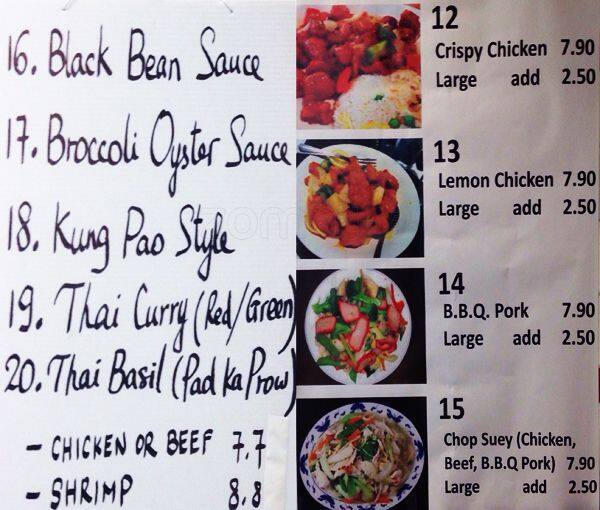 16. Black Bean Sauce
17. Broccoli Oyster Sauce
18. Kung Pao Style
19. Thai Curry (Red/Green)
20. Thai Basil (Pad Ka Prow)
- CHICKEN OR BEEF 7.7
- SHRIMP 8.8
12
Crispy Chicken 7.90
Large add 2.50
13
Lemon Chicken 7.90
Large add 2.50
14
B.B.Q. Pork 7.90
Large add 2.50
15
Chop Suey (Chicken,
Beef, B.B.Q Pork) 7.90
Large add 2.50